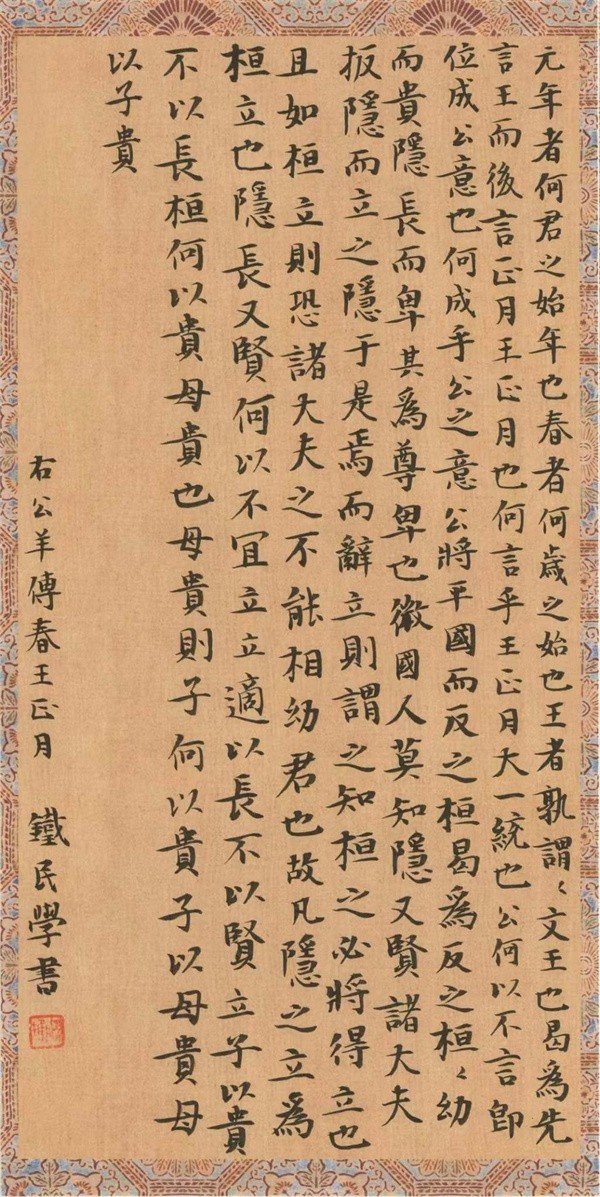 元年者何君之始年也春者何歲之始也王者孰謂〻文王也曷為先
言王而後言正月王正月也何言乎王正月大一統也公何以不言即
位成公意也何成乎公之意公將平國而反之桓曷為反之桓〻幼
而貴隱長而卑其為尊卑也微國人莫知隱又賢諸大夫
扳隱而立之隱于是焉而辭立則謂之知桓之必將得立也
且如桓立則恐諸大夫之不能相幼君也故凡隱之立為
桓立也隱長又賢何以不宜立立適以長不以賢立子以貴
不以長桓何以貴母貴也母貴則子何以貴子以母貴母
以子貴
右公羊傳春王正月 鐵民學書